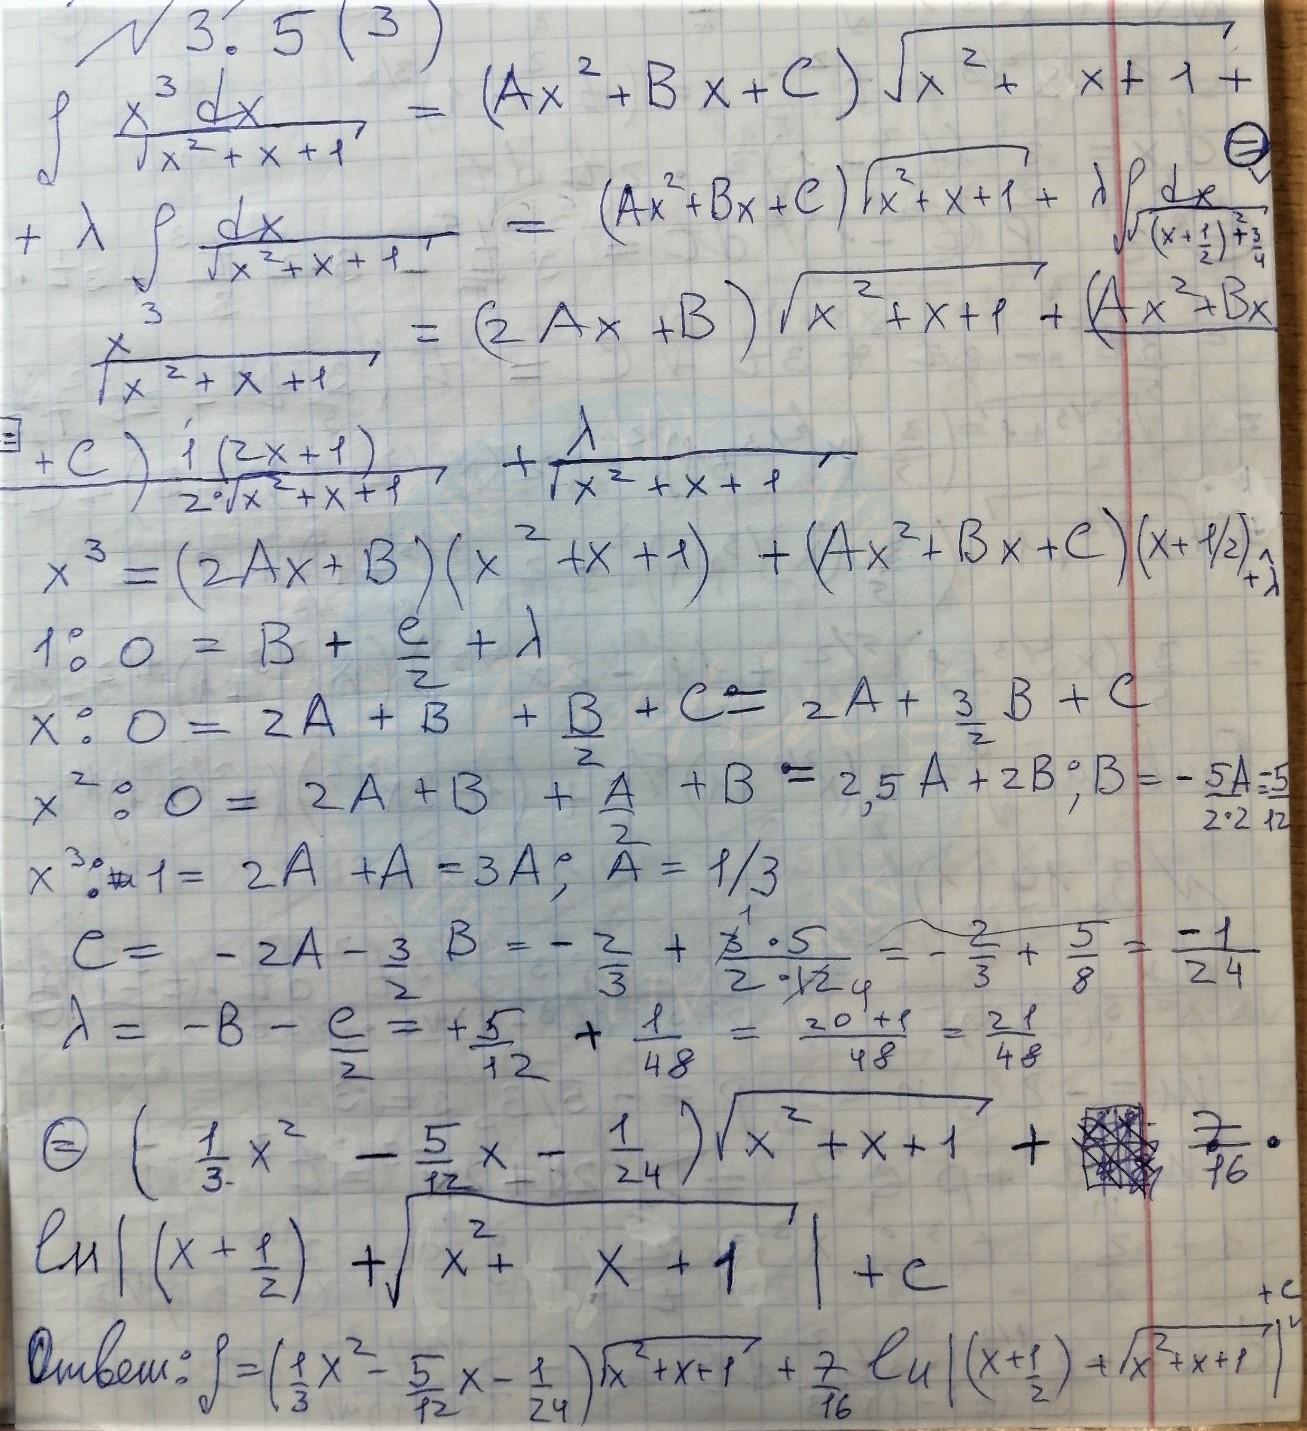 № 3.5 (3)
∫ x³dx / √(x² + x + 1) = (Ax² + Bx + C) √(x² + x + 1) +
+ λ ∫ dx / √(x² + x + 1) = (Ax² + Bx + C) √(x² + x + 1) + λ ∫ dx / √((x + 1/2)² + 3/4) ⊜
x³ / √(x² + x + 1) = (2Ax + B) √(x² + x + 1) + (Ax² + Bx
+ C) 1(2x + 1) / 2·√(x² + x + 1) + λ / √(x² + x + 1)
x³ = (2Ax + B)(x² + x + 1) + (Ax² + Bx + C)(x + 1/2) + λ
1: 0 = B + C/2 + λ
x: 0 = 2A + B + B/2 + C = 2A + 3/2 B + C
x²: 0 = 2A + B + A/2 + B = 2,5A + 2B; B = - 5A/2·2 = 5/12
x³: 1 = 2A + A = 3A; A = 1/3
C = - 2A - 3/2 B = - 2/3 + 3·5/2·12 = - 2/3 + 5/8 = -1/24
λ = - B - C/2 = + 5/12 + 1/48 = 20+1/48 = 21/48
⊜ (1/3 x² - 5/12 x - 1/24) √(x² + x + 1) + 7/16 ·
ln |(x + 1/2) + √(x² + x + 1)| + c
Ответ: ∫ = (1/3 x² - 5/12 x - 1/24) √(x² + x + 1) + 7/16 ln |(x + 1/2) + √(x² + x + 1)| + c